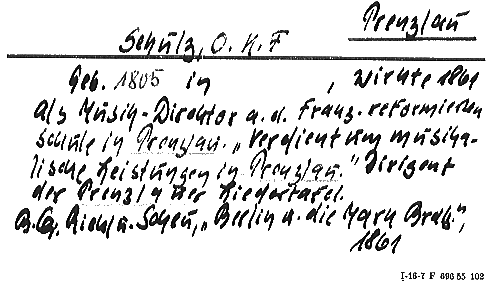 Prenzlau
Schulz, O. K. F
Geb. 1805 in , wirkte 1861
als Musik-Direktor a. d. Franz. reformierten
Schule in Prenzlau. „Verdient um musika-
lische Leistungen in Prenzlau." Dirigent
der Prenzlauer Liedertafel.
B. Richl u. Scheu, „Berlin u. die Mark Brdbg.",
1861
I-16-7 F 696 55 102